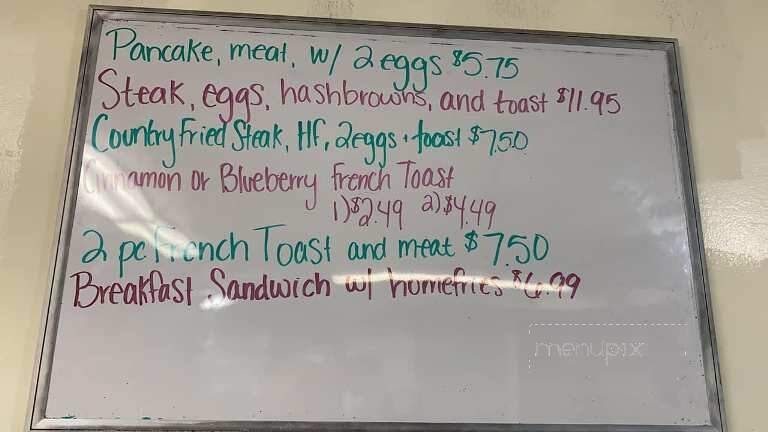 Pancake, meat, w/ 2 eggs $5.75
Steak, eggs, hashbrowns, and toast $11.95
Country Fried Steak, HF, 2eggs + toast $7.50
Cinnamon or Blueberry French Toast
1) $2.49 2) $4.49
2 pc French Toast and meat $7.50
Breakfast Sandwich w/ homefries $6.99
menupix